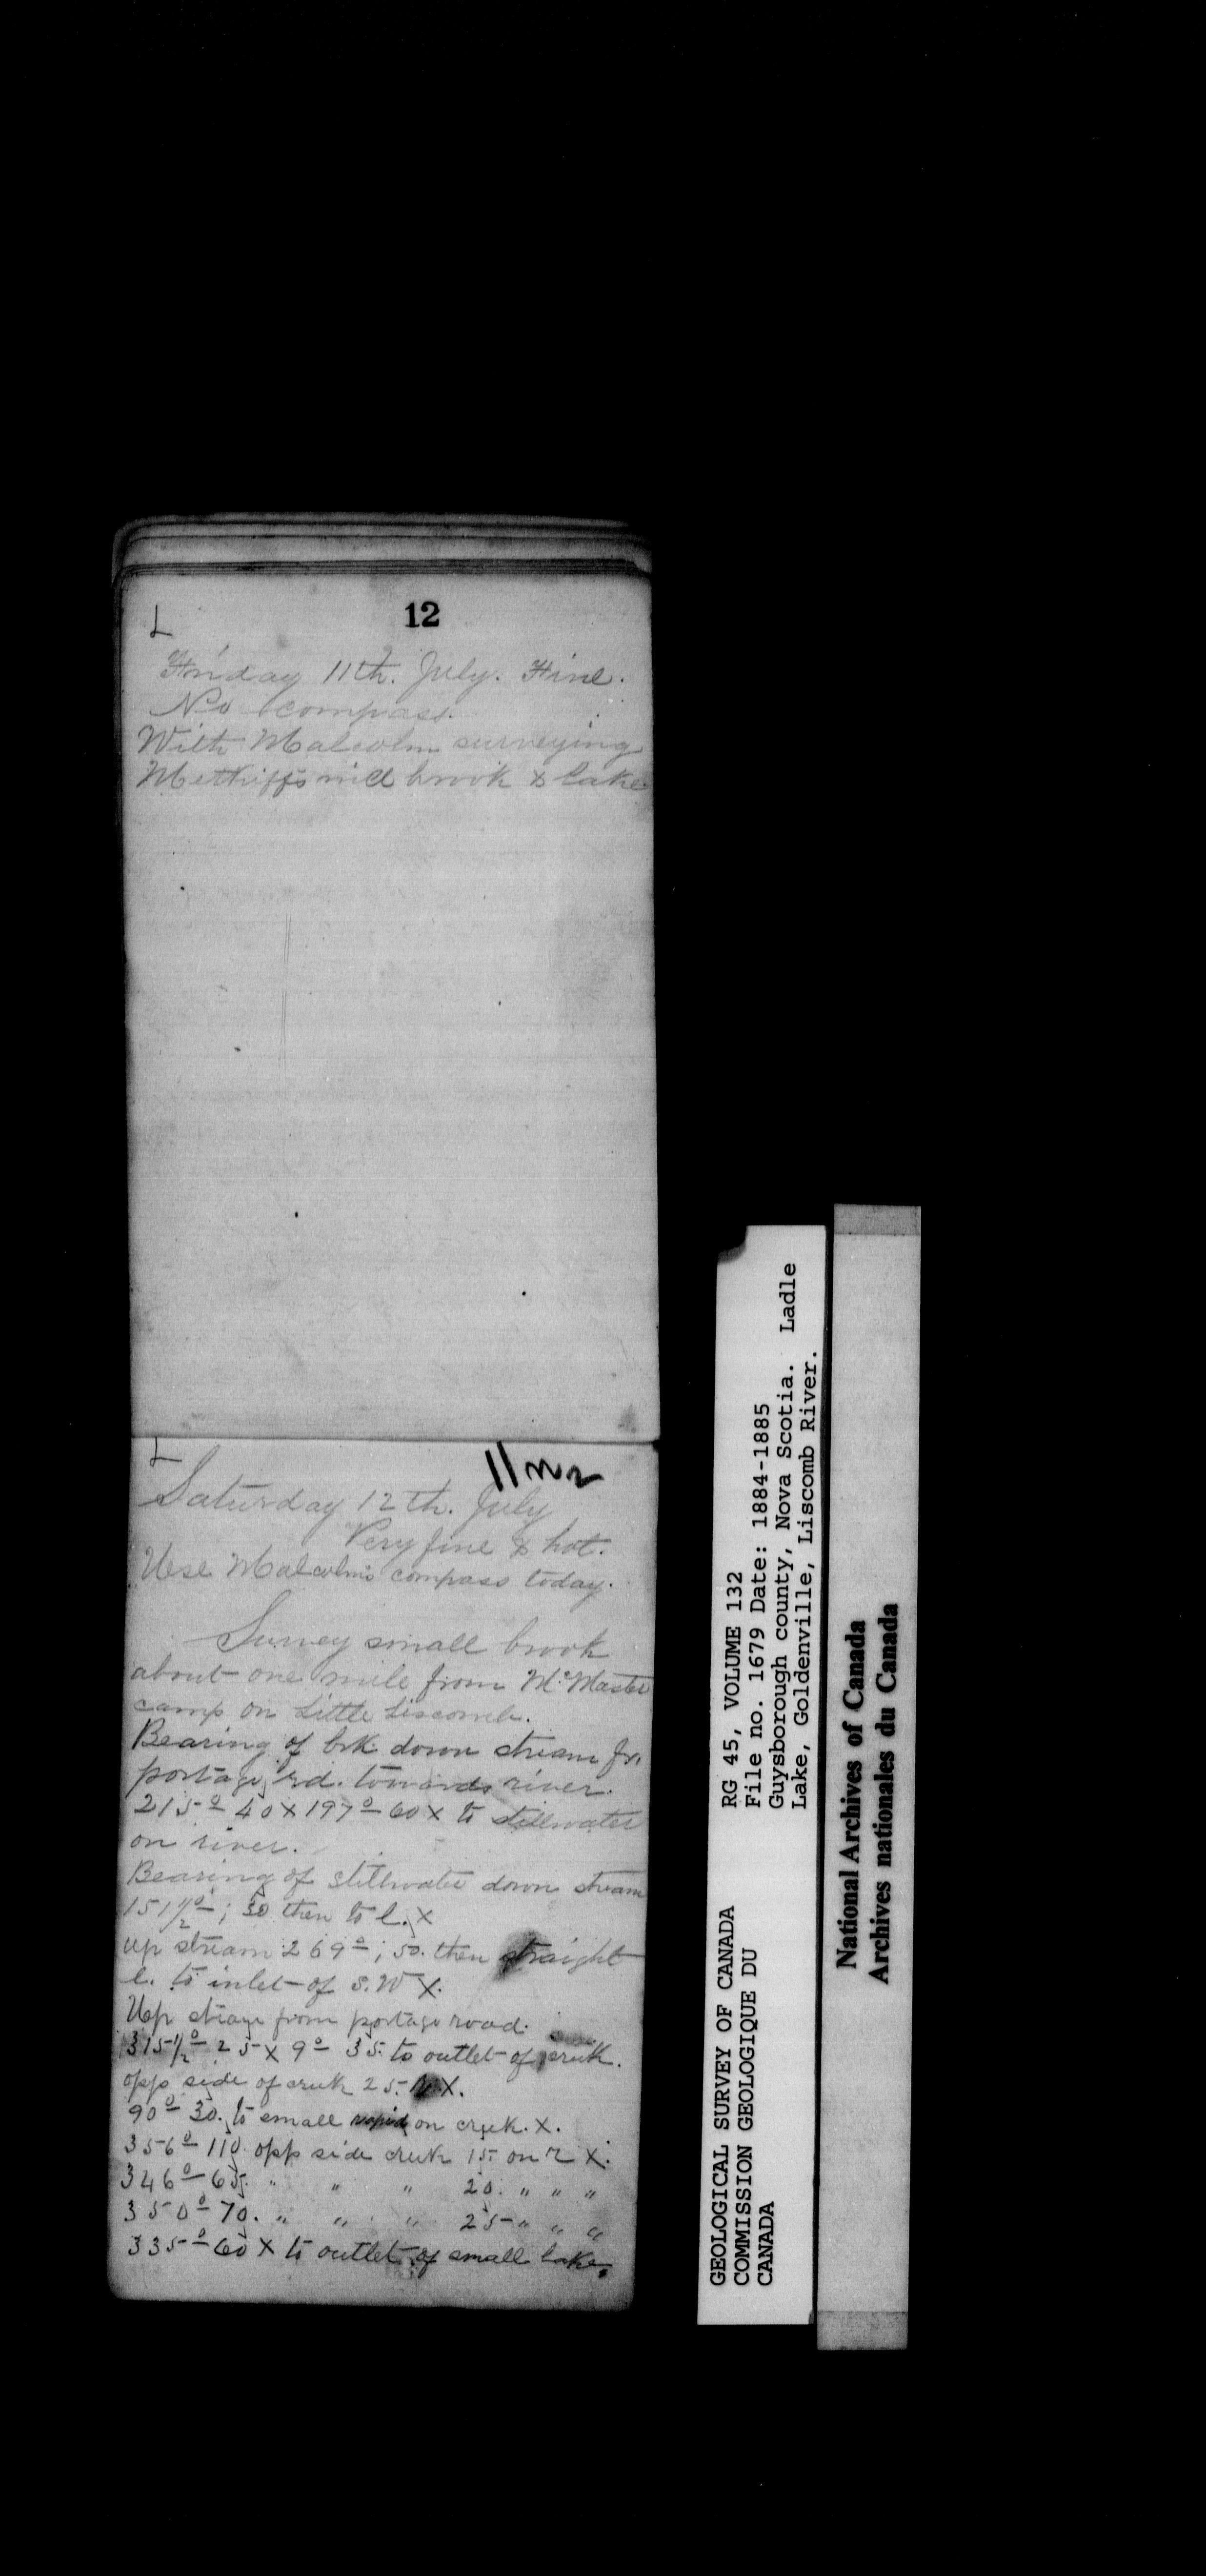 L
12
Friday 11th. July. Fine.
No compass.
With Malcolm surveying
mill brook & lake
L
Saturday 12th. July
Very fine & hot.
Use Malcolm's compass today.
Survey small brook
about one mile from McMaster
camp on Little Liscomb.
Bearing of brk down stream fr.
portage rd. towards river.
215º 40 x 197º 60 x to stillwater
on river.
Bearing of stillwater down stream
151½º; 30 then to l. x
up stream 269º; 50. then straight
l. to inlet of S.W x.
Up stream from portage road.
315½º 25 x 9º 35. to outlet of creek.
opp side of creek 25. x.
90º 30. to small rapid on creek. x.
356º 110. opp side creek 15. on r x.
346º 65. " " " 20. " " "
350º 70. " " " 25 " " "
335º 60 x to outlet of small lake.
GEOLOGICAL SURVEY OF CANADA
COMMISSION GEOLOGIQUE DU
CANADA
RG 45, VOLUME 132
File no. 1679 Date: 1884-1885
Guysborough county, Nova Scotia. Ladle
Lake, Goldenville, Liscomb River.
National Archives of Canada
Archives nationales du Canada